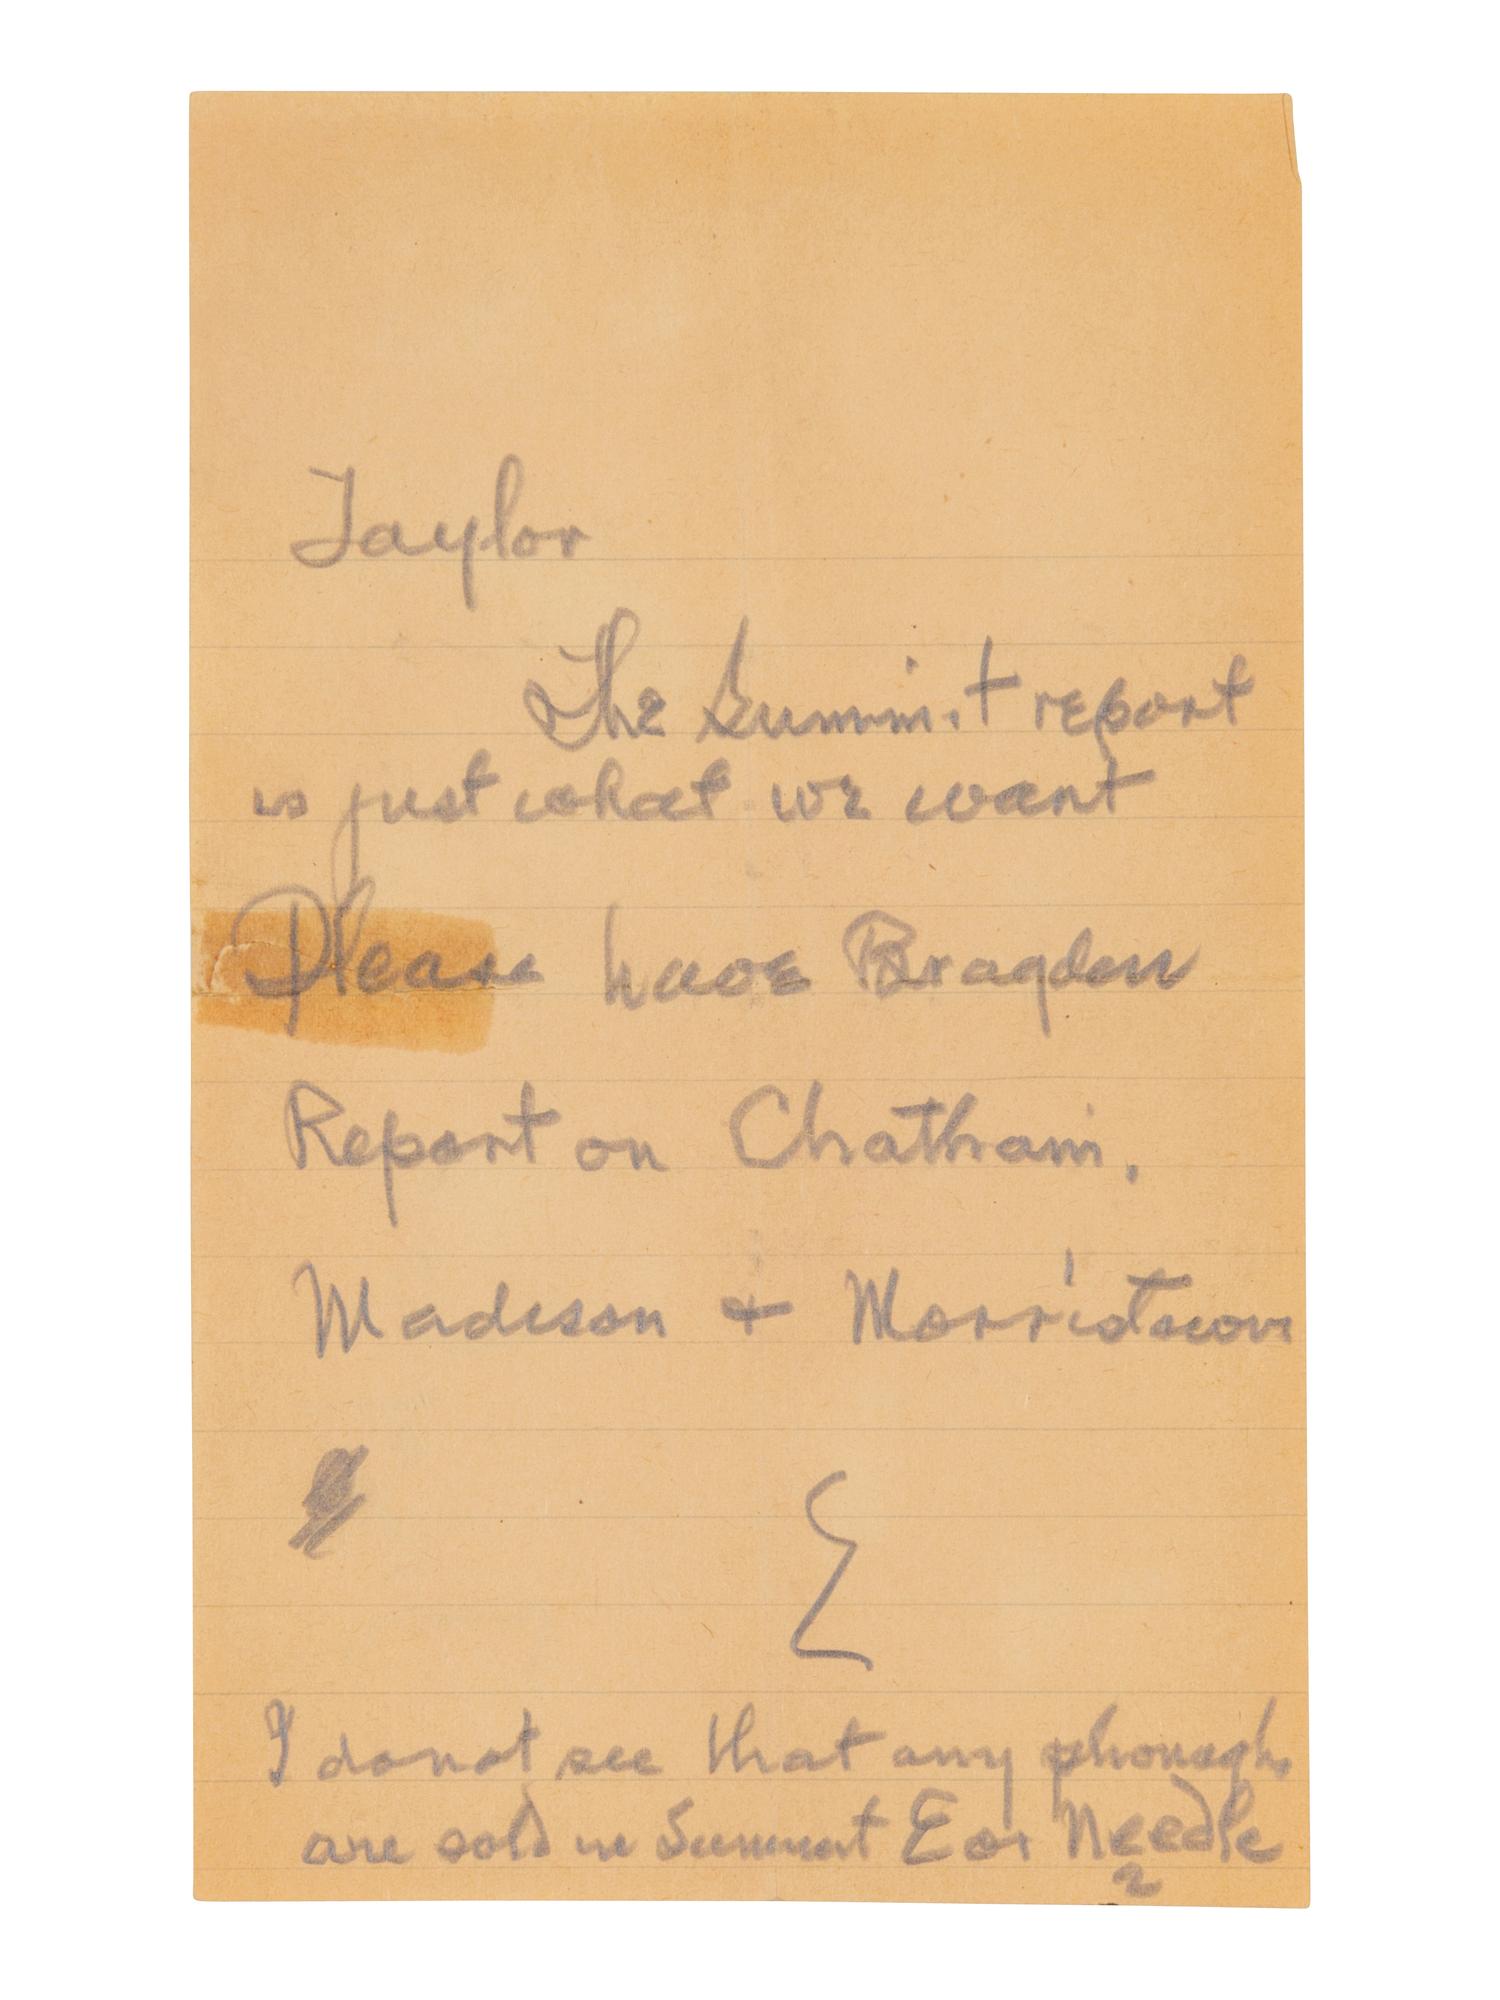 Taylor
The Summit report
is just what we want
Please have Bragden
Report on Chatham,
Madison & Morristown
E
I do not see that any phonoghs
are sold in Summit E or Needle
2